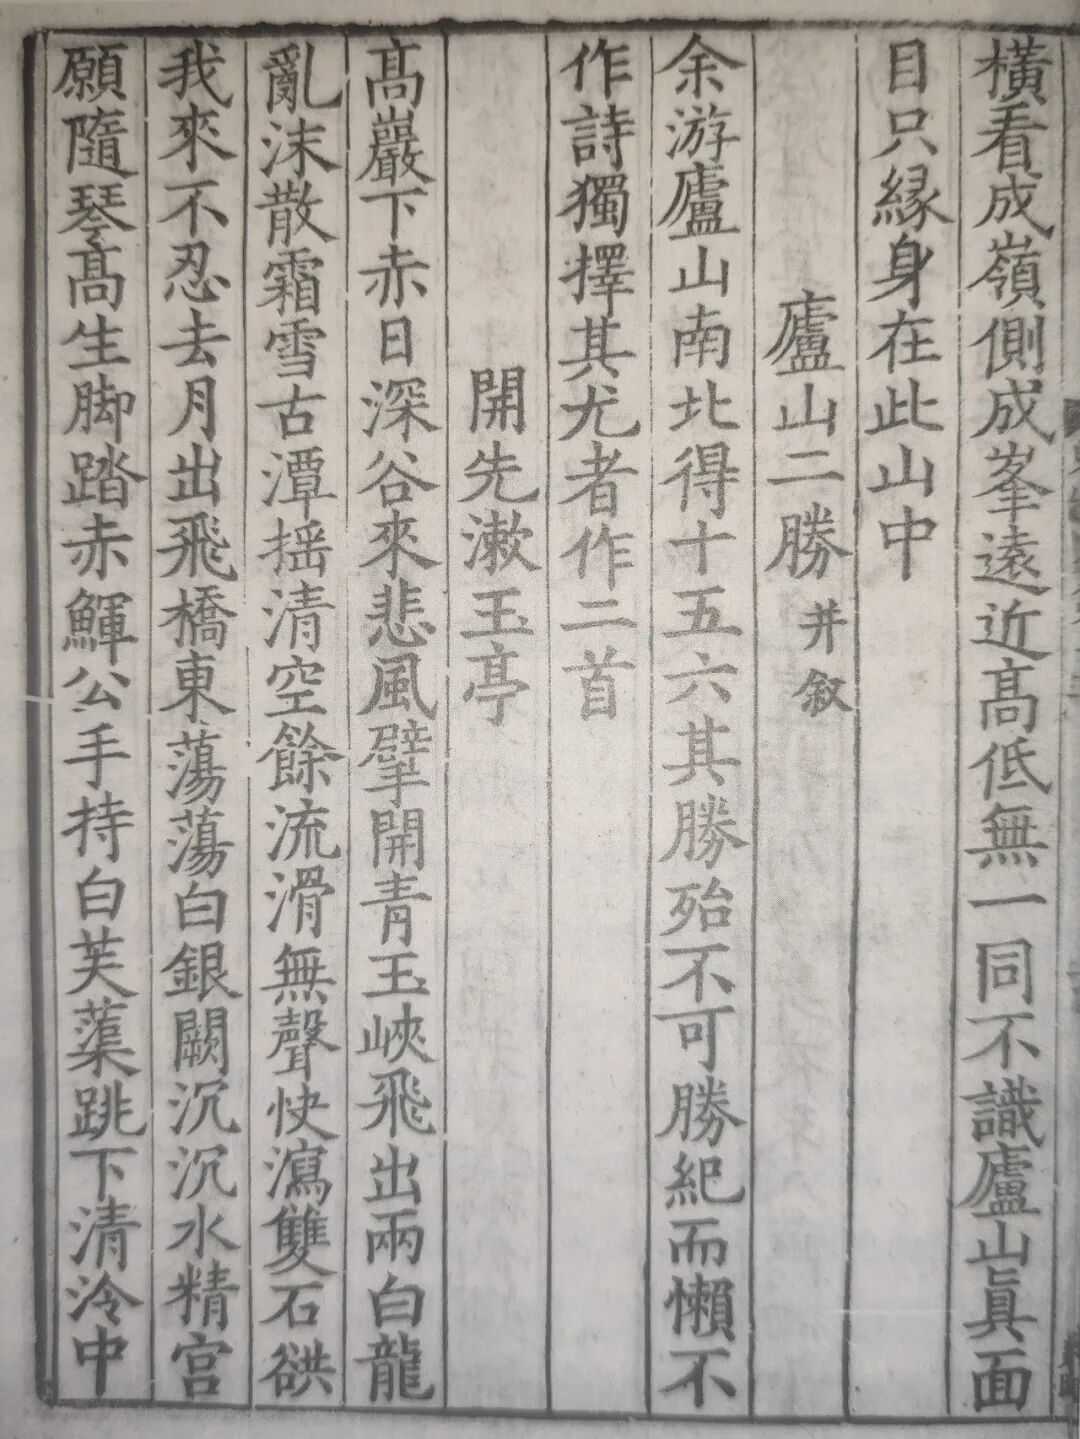 橫看成嶺側成峯遠近髙低無一同不識廬山眞面
目只緣身在此山中
廬山二勝并叙
余游廬山南北得十五六其勝殆不可勝紀而懶不
作詩獨擇其尤者作二首
開先漱玉亭
髙巖下赤日深谷來悲風擘開青玉峽飛出兩白龍
亂沫散霜雪古潭揺清空餘流滑無聲快瀉雙石谼
我來不忍去月出飛橋東蕩蕩白銀闕沉沉水精宮
願隨琴髙生脚踏赤鯶公手持白芙蕖跳下清泠中